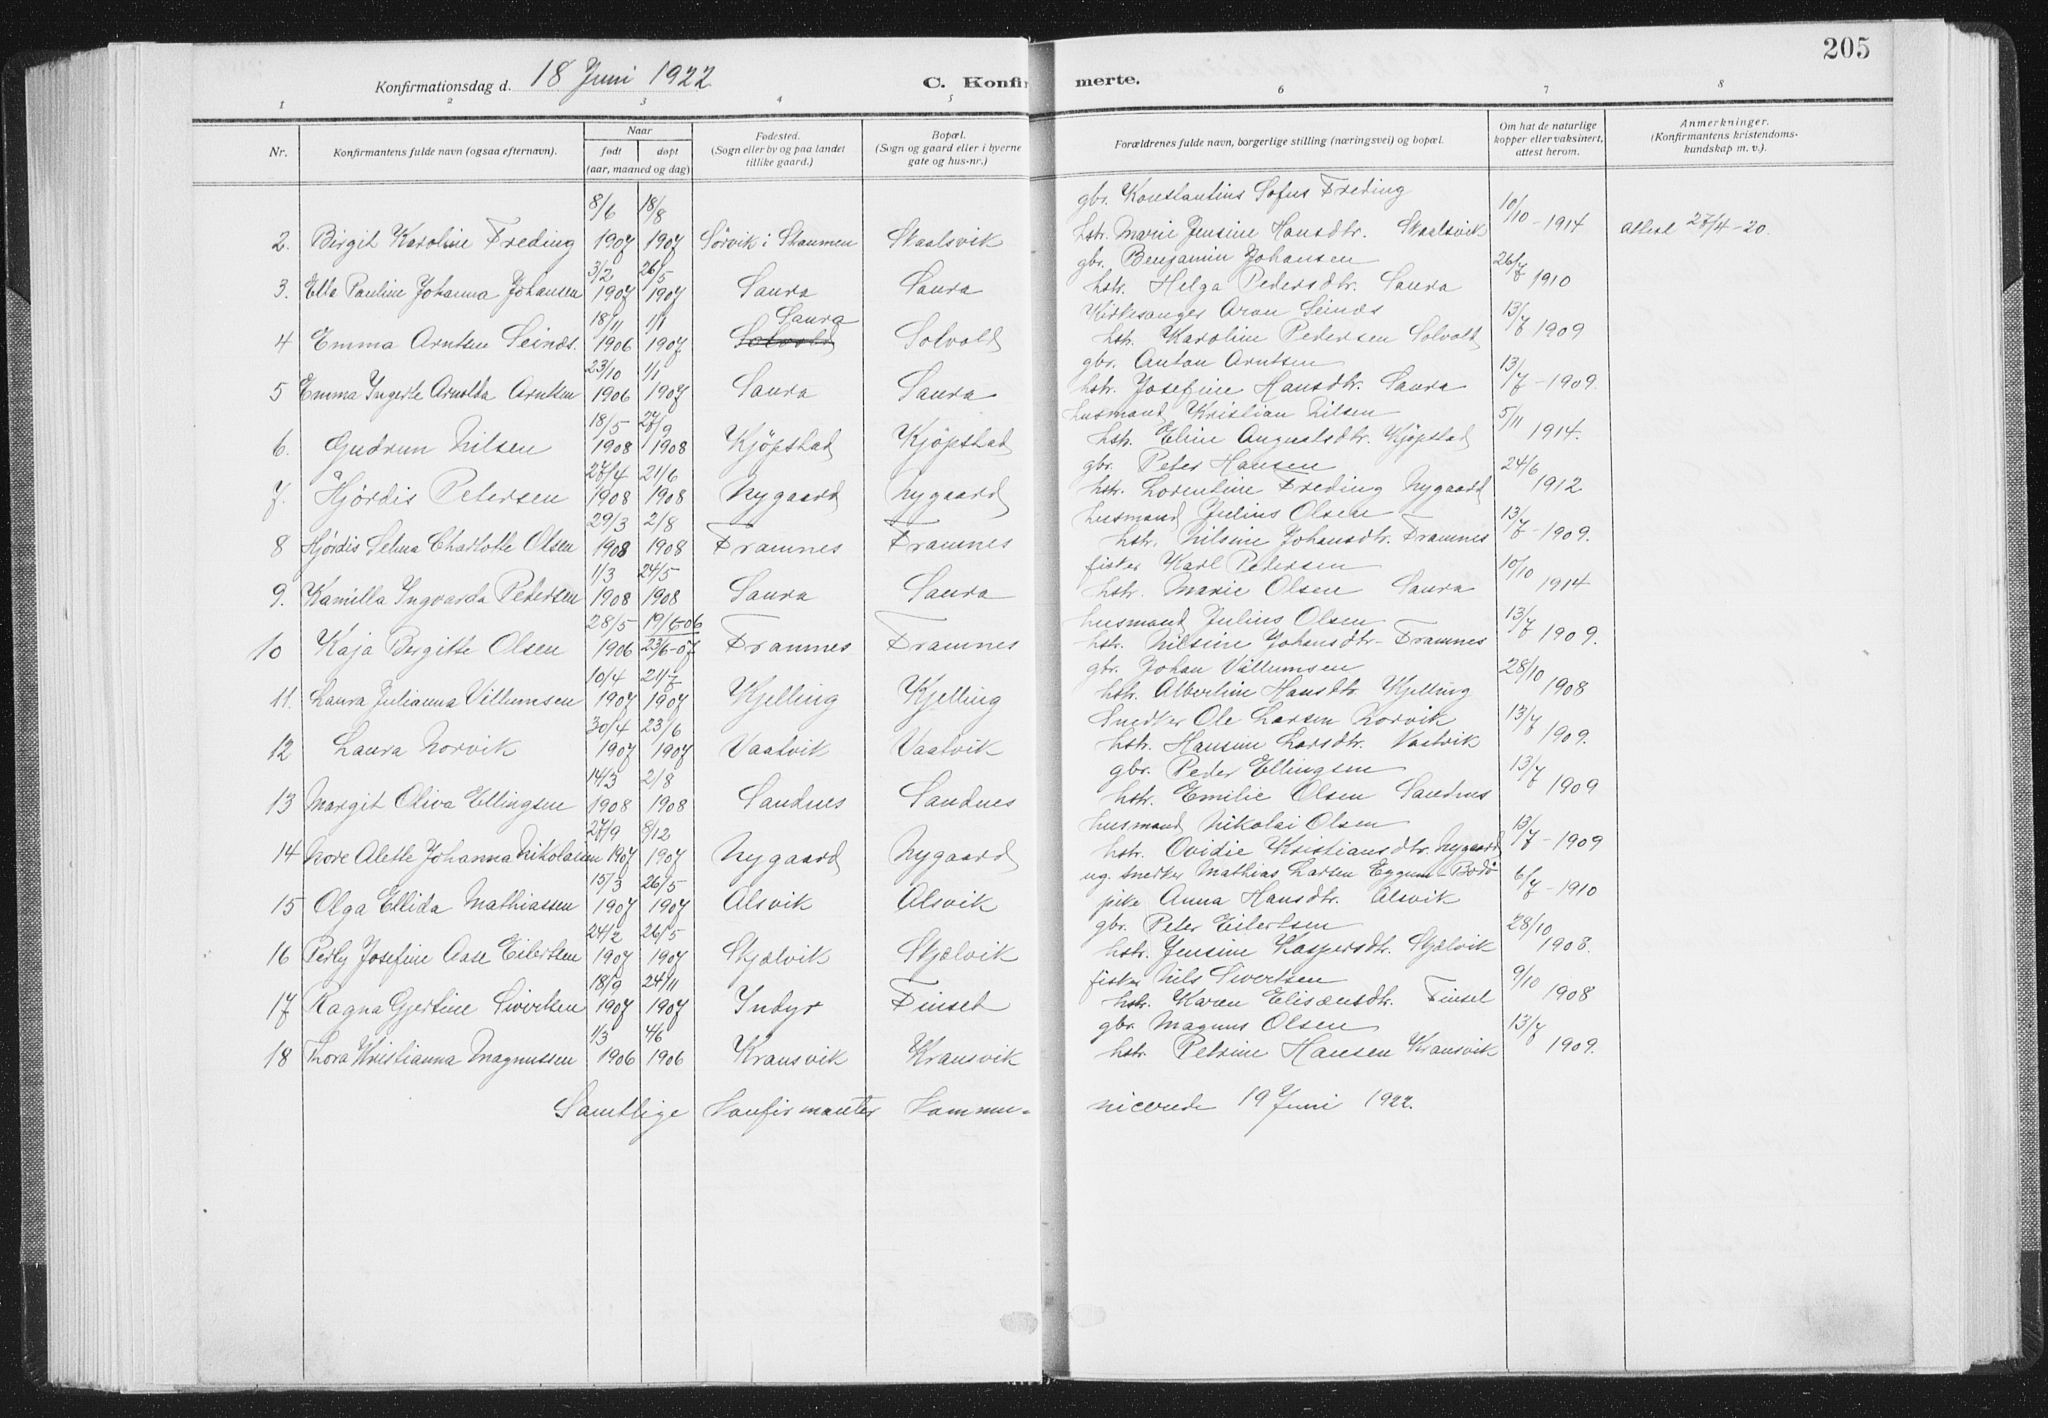 205
Konfirmationsdag d. 18 Juni 1922 C. Konfirmerte.
1 2 3 4 5 6 7 8
Nr. Konfirmantens fulde navn (ogsaa efternavn). Naar født døpt (aar, maaned og dag) Fødested. (Sogn eller by og paa landet tillike gaard.) Bopæl. (Sogn og gaard eller i byerne gate og hus-nr.) Forældrenes fulde navn, borgerlige stilling (næringsvei) og bopæl. Om hat de naturlige kopper eller vaksinert, attest herom. Anmerkninger. (Konfirmantens kristendoms-kundskap m. v.).
8/6 18/8 gbr. Konstantius Sofus Freding 10/10
2. Birgit Karoline Freding 1907 1907 Sørvik i Skaunen Skaalsvik hstr. Marie Jensine Hansdtr. Skaalsvik - 1914 attest 27/4-20.
3/2 26/5 gbr. Benjamin Johansen 26/7
3. Ella Pauline Johanna Johansen 1907 1907 Saura Saura hstr. Helga Pedersdtr. Saura 1910
18/11 1/1 Saura Kirkesanger Aron Seines 13/7
4 Emma Arntsen Seines. 1906 1907 Solvold Solvold hstr. Karoline Pedersen Solvold 1909
23/10 1/1 gbr. Anton Arntsen 13/7
5 Emma Ingerte Arnolda Arntsen 1906 1907 Saura Saura hstr. Josefine Hansdtr. Saura - 1909.
18/5 27/9 husmand Kristian Nilsen 5/11
6. Gudrun Nilsen 1908 1908 Kjøpstad Kjøpstad hstr. Eline Augustsdtr. Kjøpstad 1914.
27/4 21/6 gbr. Peter Hansen 24/6
7. Hjørdis Petersen 1908 1908 Nygaard Nygaard hstr. Lorentine Freding Nygaard 1912
29/3 2/8 husmand Julius Olsen 13/7
8 Hjørdis Selma Charlotte Olsen 1908 1908 Framnes Framnes hstr. Nilsine Johansdtr. Framnes - 1909.
1/3 24/5 fisker Karl Petersen 10/10
9. Kamilla Ingvarda Petersen 1908 1908 Saura Saura hstr. Marie Olsen Saura 1914
28/5 19/6-06 husmand Julius Olsen 13/7
10 Kaja Bergitte Olsen 1906 23/6-07 Framnes Framnes hstr. Nilsine Johansdtr- Framnes 1909.
10/4 21/7 gbr. Johan Villumsen 28/10
11. Laura Julianna Villumsen 1907 1907 Kjelling Kjelling hstr. Albertine Hansdtr Kjelling 1908
30/4 23/6 Snedker Ole Larsen Norvik 13/7
12 Laura Norvik 1907 1907 Vaatvik Vaatvik hstr. Hansine Larsdtr. Vaatvik 1909.
14/3 2/8 gbr. Peder Ellingsen 13/7
13 Margit Oliva Ellingsen 1908 1908 Sandnes Sandnes hstr. Emilie Olsen Sandnes 1909
27/9 8/12 husmand Nikolai Olsen 13/7
14 Nore Alette Johanna Nikolaisen 1907 1907 Nygaard Nygaard hstr. Ovidie Kristiansdtr. Nygaard - 1909
15/3 26/5 ug. snedker Mathias Larsen Eggum - Bodø 6/7
15 Olga Ellida Mathiassen 1907 1907 Alsvik Alsvik pike Anna Hansdtr. Alsvik - 1910
24/2 26/5 gbr. Peter Eilertsen 28/10
16 Petly Josefine Aase Eilertsen 1907 1907 Skjælvik Skjælvik hstr. Jensine Kaspersdtr. Skjælvik 1908.
18/9 24/11 fisker Nils Sivertsen 9/10
17 Ragna Gjertine Sivertsen 1907 1907 Indyr Finset hstr. Karen Elisænsdtr. Finset 1908
1/3 4/6 gbr. Magnus Olsen 13/7
18 Thora Kristianna Magnussen 1906 1906 Kransvik Kransvik hstr. Petrine Hansen Kransvik 1909.
Samtlige konfirmanter kommu- nicerede 19 Juni 1922.